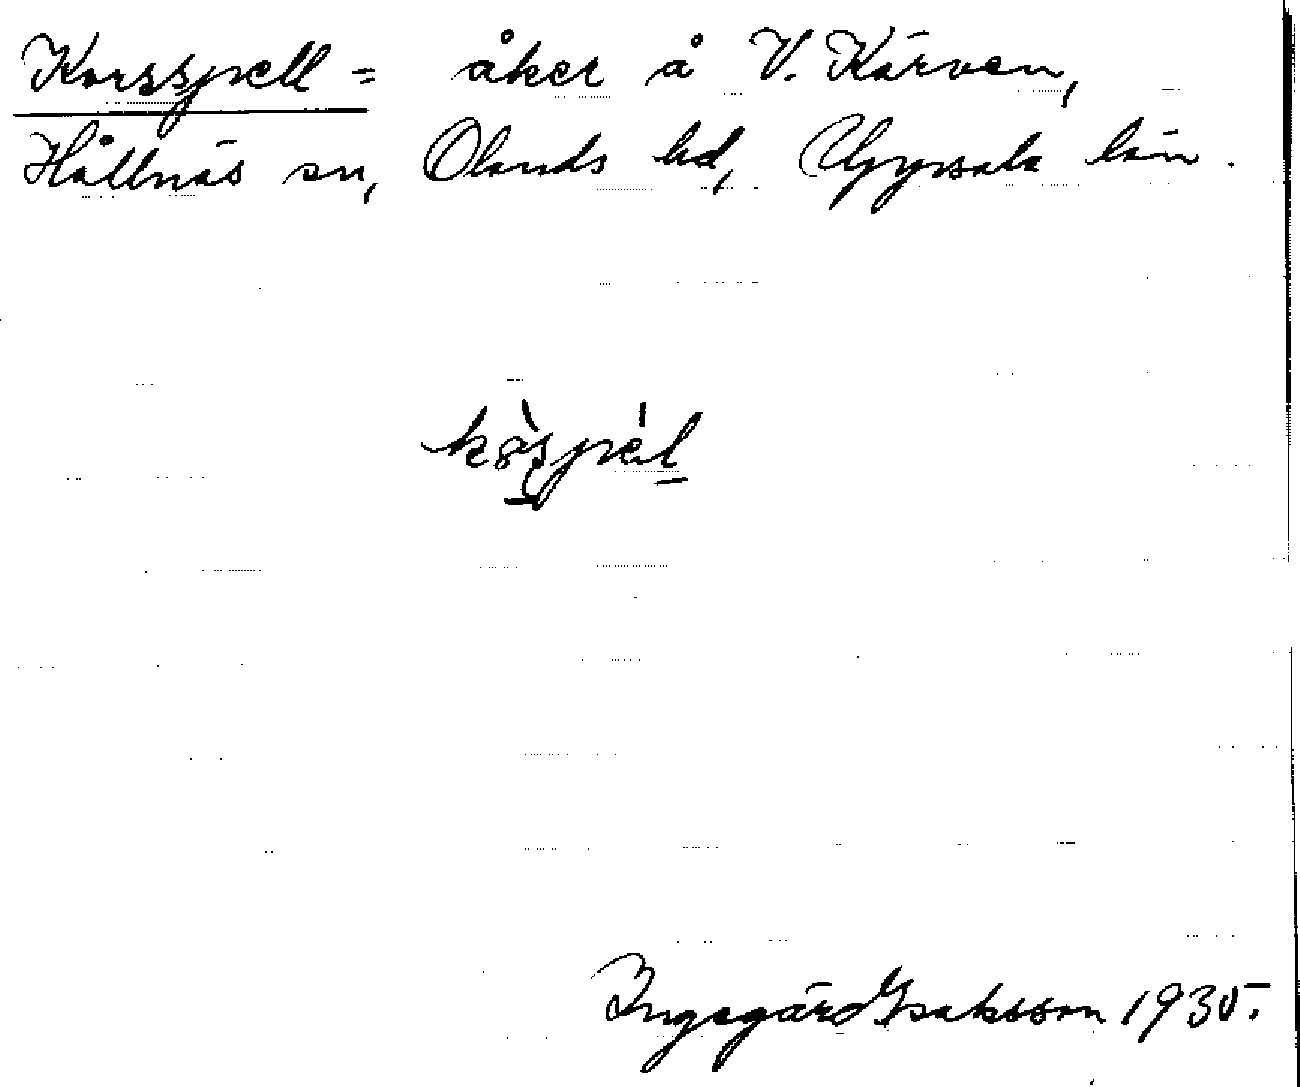 Korsspell = åker å V. Kärven,
Hållnäs sn, Olands hd, Uppsala län.
Ingegärd Isaksson 1935.